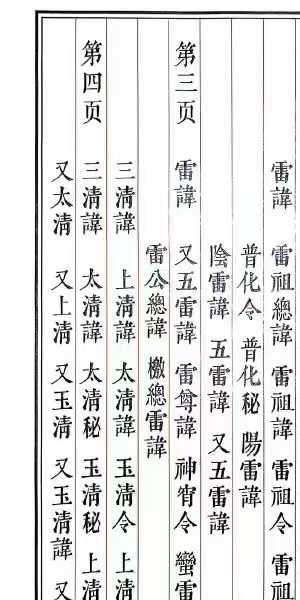 雷諱 雷祖總諱 雷祖諱 雷祖令 雷祖
普化令 普化秘 陽雷諱
陰雷諱 五雷諱 又五雷諱
第三页 雷諱 又五雷諱 雷尊諱 神宵令 蠻雷
雷公總諱 檄總雷諱
三清諱 上清諱 太清諱 玉清令 上清
第四页 三清諱 太清諱 太清秘 玉清秘 上清
又太清 又上清 又玉清 又玉清諱 又